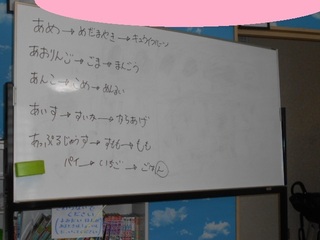 あめっ→めだまやき→キュウイフルーツ
あおりんご→ごま→まんごう
あんこ→こめ→めんまい
あいす→すいか→からあげ
あっぷるじゅうす→すもも→もも
パイ→いちご→ごはん
ください